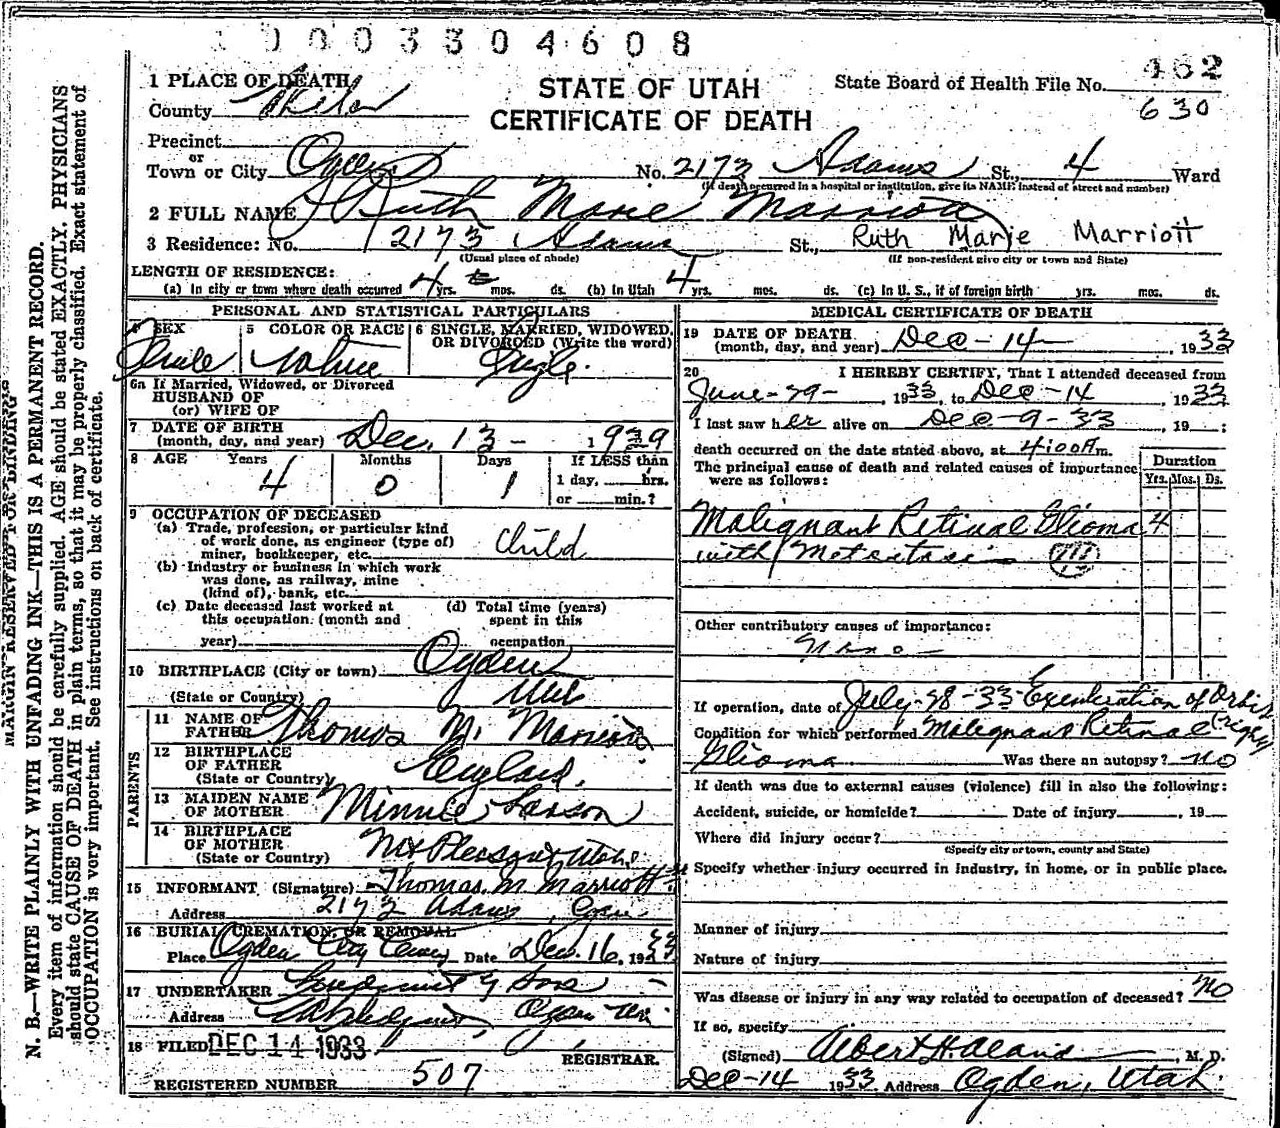 1 0 0 0 3 3 0 4 6 0 8
MARGIN RESERVED FOR BINDING
N. B.—WRITE PLAINLY WITH UNFADING INK—THIS IS A PERMANENT RECORD.
Every item of information should be carefully supplied. AGE should be stated EXACTLY. PHYSICIANS
should state CAUSE OF DEATH in plain terms, so that it may be properly classified. Exact statement of
OCCUPATION is very important. See instructions on back of certificate.
STATE OF UTAH
CERTIFICATE OF DEATH
State Board of Health File No. 462
630
1 PLACE OF DEATH
County Weber
Precinct
or
Town or City Ogden No. 2173 Adams St., 4 Ward
(If death occurred in a hospital or institution, give its NAME instead of street and number)
2 FULL NAME Ruth Marie Marriott
3 Residence: No. 2173 Adams St., Ruth Marie Marriott
(Usual place of abode) (If non-resident give city or town and State)
LENGTH OF RESIDENCE:
(a) In city or town where death occurred 4 yrs. mos. ds. (b) In Utah 4 yrs. mos. ds. (c) In U. S., if of foreign birth yrs. mos. ds.
PERSONAL AND STATISTICAL PARTICULARS
4 SEX 5 COLOR OR RACE 6 SINGLE, MARRIED, WIDOWED,
OR DIVORCED (Write the word)
Female White Single.
6a If Married, Widowed, or Divorced
HUSBAND OF
(or) WIFE OF
7 DATE OF BIRTH
(month, day, and year) Dec. 13 - 1929
8 AGE Years Months Days If LESS than
4 0 1 1 day, hrs.
or min.?
9 OCCUPATION OF DECEASED
(a) Trade, profession, or particular kind
of work done, as engineer (type of)
miner, bookkeeper, etc. Child
(b) Industry or business in which work
was done, as railway, mine
(kind of), bank, etc.
(c) Date deceased last worked at (d) Total time (years)
this occupation (month and spent in this
year) occupation
10 BIRTHPLACE (City or town) Ogden
(State or Country)
PARENTS
11 NAME OF
FATHER Thomas M. Marriott
12 BIRTHPLACE
OF FATHER England.
(State or Country)
13 MAIDEN NAME
OF MOTHER Minnie Larson
14 BIRTHPLACE
OF MOTHER Mt Pleasant, Utah.
(State or Country)
15 INFORMANT (Signature) Thomas M Marriott
Address 2173 Adams, Ogden
16 BURIAL CREMATION, OR REMOVAL
Place Ogden City Cemy Date Dec. 16, 1933
17 UNDERTAKER & Sons
Address Ogden
18 FILED DEC 14 1933
REGISTRAR.
REGISTERED NUMBER 507
MEDICAL CERTIFICATE OF DEATH
19 DATE OF DEATH
(month, day, and year) Dec - 14 , 1933
20 I HEREBY CERTIFY, That I attended deceased from
June - 29 - , 1933, to Dec - 14 , 1933
I last saw her alive on Dec - 9 - 33 , 19 ;
death occurred on the date stated above, at 4:00 A m.
The principal cause of death and related causes of importance
were as follows:
Duration
Yrs. Mos. Ds.
Malignant Retinal Glioma 4
with Metastasis
Other contributory causes of importance:
None
If operation, date of July - 28 - 33 Exenteration of Orbit
Condition for which performed Malignant Retinal (right)
Glioma Was there an autopsy? no
If death was due to external causes (violence) fill in also the following:
Accident, suicide, or homicide? Date of injury , 19
Where did injury occur?
(Specify city or town, county and State)
Specify whether injury occurred in industry, in home, or in public place.
Manner of injury
Nature of injury
Was disease or injury in any way related to occupation of deceased? no
If so, specify
(Signed) Albert H. Aland , M. D.
Dec - 14 1933 Address Ogden, Utah.